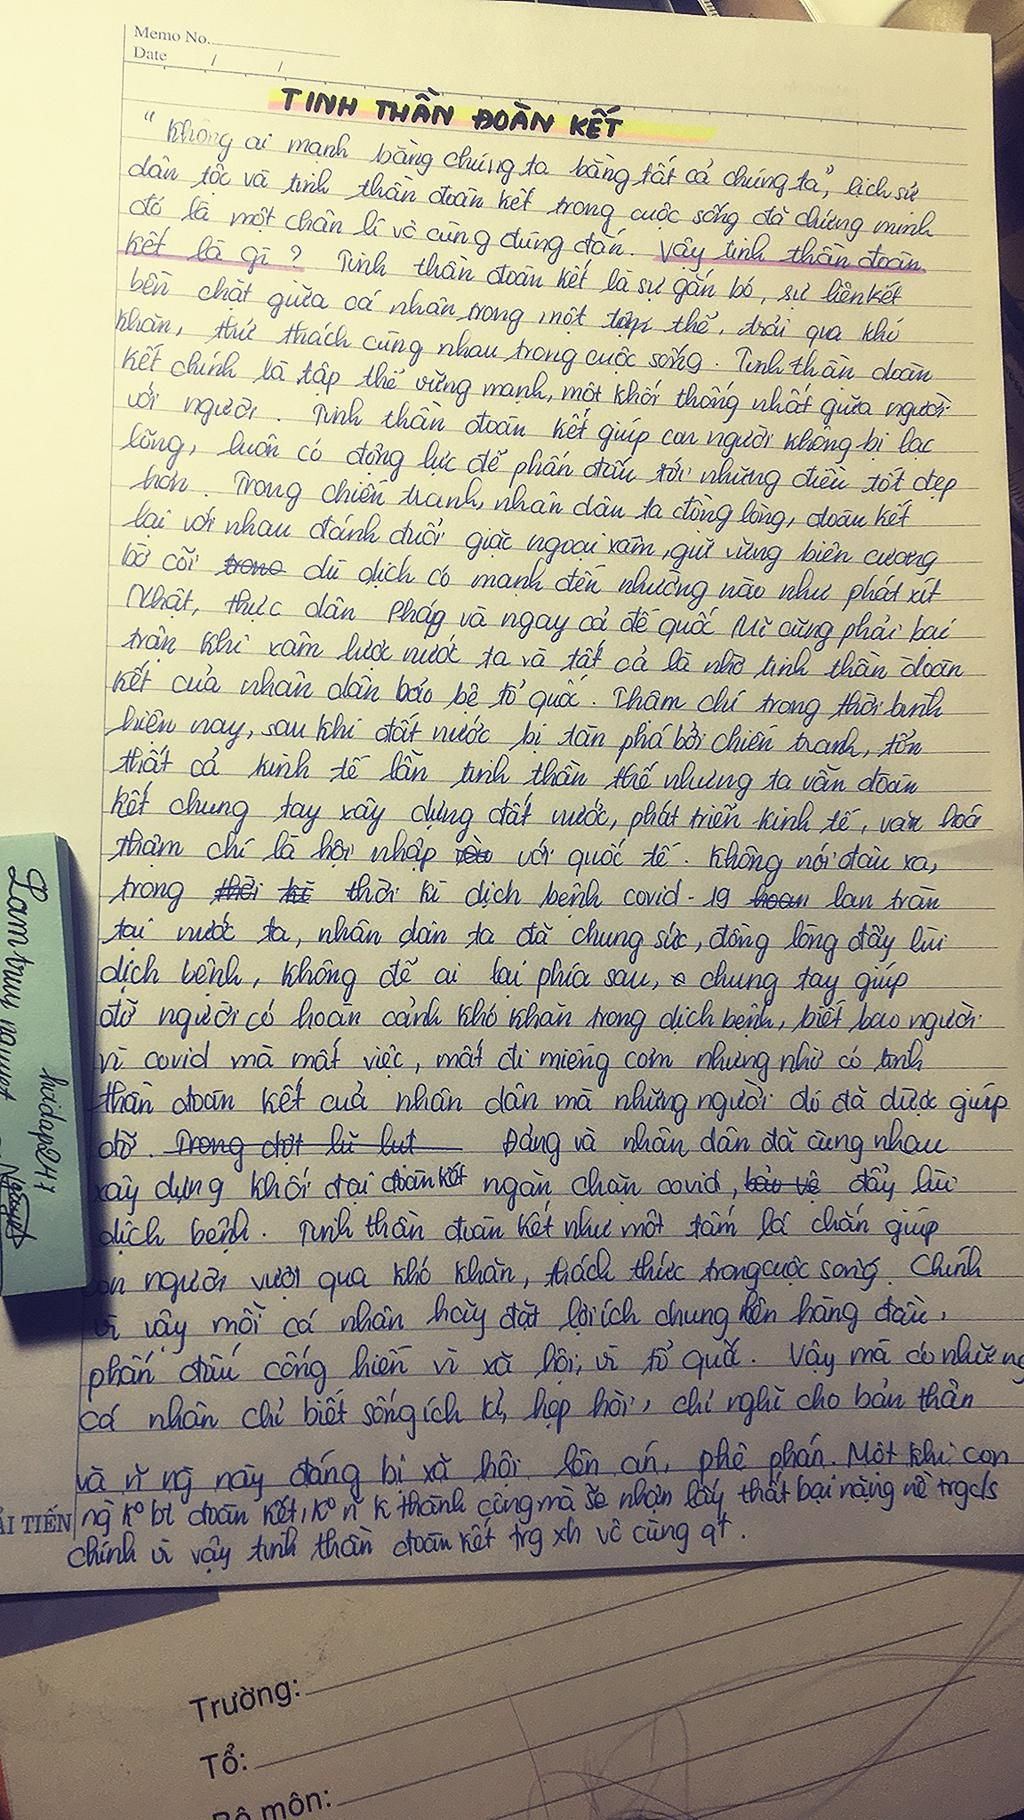 Memo No.
Date / /
TINH THẦN ĐOÀN KẾT
"Không ai mạnh bằng chúng ta bằng tất cả chúng ta", lịch sử
dân tộc và tinh thần đoàn kết trong cuộc sống đã chứng minh
đó là một chân lí vô cùng đúng đắn. Vậy tinh thần đoàn
kết là gì? Tinh thần đoàn kết là sự gắn bó, sự liên kết
bền chặt giữa cá nhân trong một tập thể, trải qua khó
khăn, thử thách cùng nhau trong cuộc sống. Tinh thần đoàn
kết chính là tập thể vững mạnh, một khối thống nhất giữa người
với người. Tinh thần đoàn kết giúp con người không bị lạc
lõng, luôn có động lực để phấn đấu tới những điều tốt đẹp
hơn. Trong chiến tranh, nhân dân ta đồng lòng, đoàn kết
lại với nhau đánh đuổi giặc ngoại xâm, giữ vững biên cương
bờ cõi dù địch có mạnh đến nhường nào như phát xít
Nhật, thực dân Pháp và ngay cả đế quốc Mĩ cũng phải bại
trận khi xâm lược nước ta và tất cả là nhờ tinh thần đoàn
kết của nhân dân bảo bệ tổ quốc. Thậm chí trong thời bình
hiện nay, sau khi đất nước bị tàn phá bởi chiến tranh, tổn
thất cả kinh tế lẫn tinh thần thế nhưng ta vẫn đoàn
kết chung tay xây dựng đất nước, phát triển kinh tế, văn hoá
thậm chí là hội nhập với quốc tế. Không nói đâu xa,
trong thời kì dịch bệnh covid-19 lan tràn
tại nước ta, nhân dân ta đã chung sức, đồng lòng đẩy lùi
dịch bệnh, không để ai lại phía sau, chung tay giúp
đỡ người có hoàn cảnh khó khăn trong dịch bệnh, biết bao người
vì covid mà mất việc, mất đi miếng cơm nhưng nhờ có tinh
thần đoàn kết của nhân dân mà những người đó đã được giúp
đỡ. Trong đợt lũ lụt Đảng và nhân dân đã cùng nhau
xây dựng khối đại đoàn kết ngăn chặn covid, bảo vệ đẩy lùi
dịch bệnh. Tinh thần đoàn kết như một tấm lá chắn giúp
con người vượt qua khó khăn, thách thức trong cuộc sống. Chính
vì vậy mỗi cá nhân hãy đặt lợi ích chung lên hàng đầu,
phấn đấu cống hiến vì xã hội, vì tổ quốc. Vậy mà có những
cá nhân chỉ biết sống ích kỉ, hẹp hòi, chỉ nghĩ cho bản thân
và ng này đáng bị xã hội lên án, phê phán. Một khi con
ng k° bt đoàn kết, k° n k thành công mà sẽ nhận lấy thất bại nặng nề trg c/s
chính vì vậy tinh thần đoàn kết trg xh vô cùng qt.
ẢI TIẾN
Lam truy
huidap247
Trường:
Tổ:
Bộ môn: